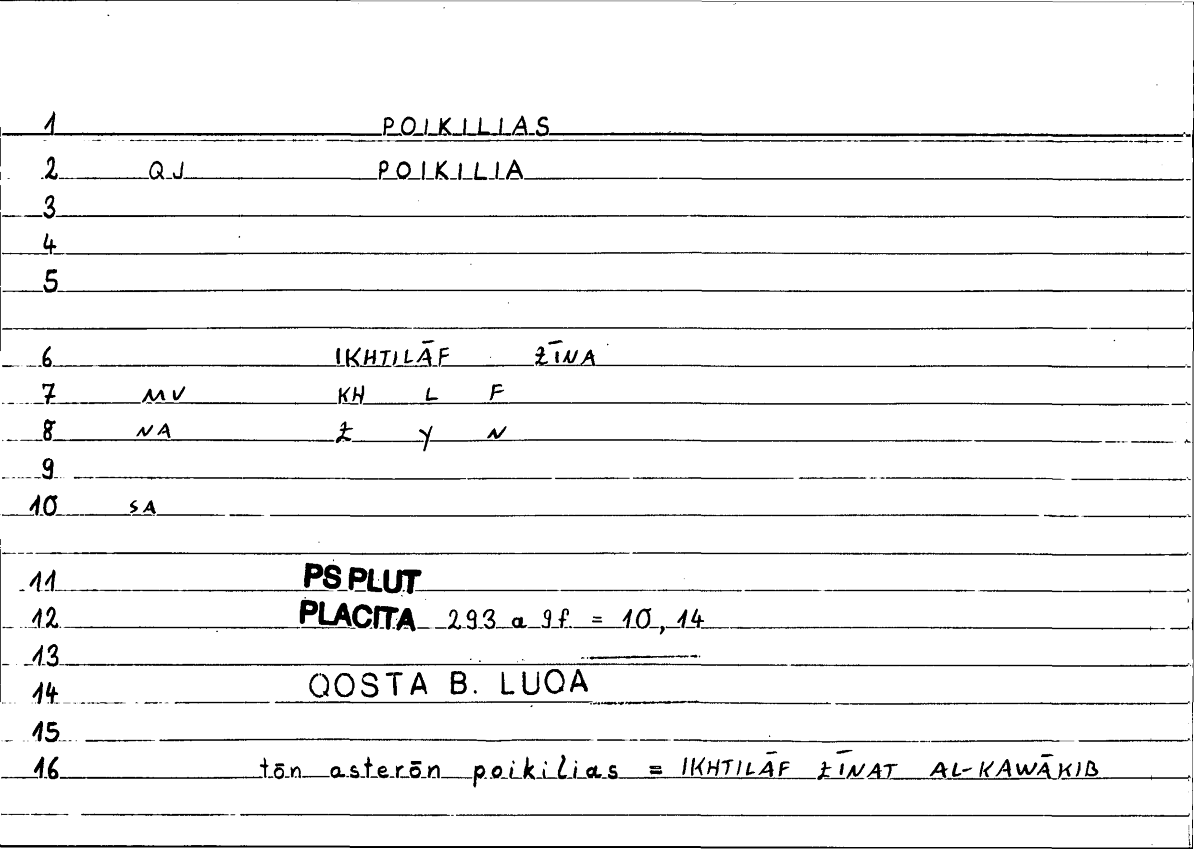 1 POIKILIAS
2 QJ POIKILIA
3
4
5
6 IKHTILĀF ZĪNA
7 MV KH L F
8 NA Z Y N
9
10 SA
11 PS PLUT
12 PLACITA 293 a 9f. = 10, 14
13
14 QOSTA B. LUQA
15
16 tōn asterōn poikilias = IKHTILĀF ZĪNAT AL-KAWĀKIB